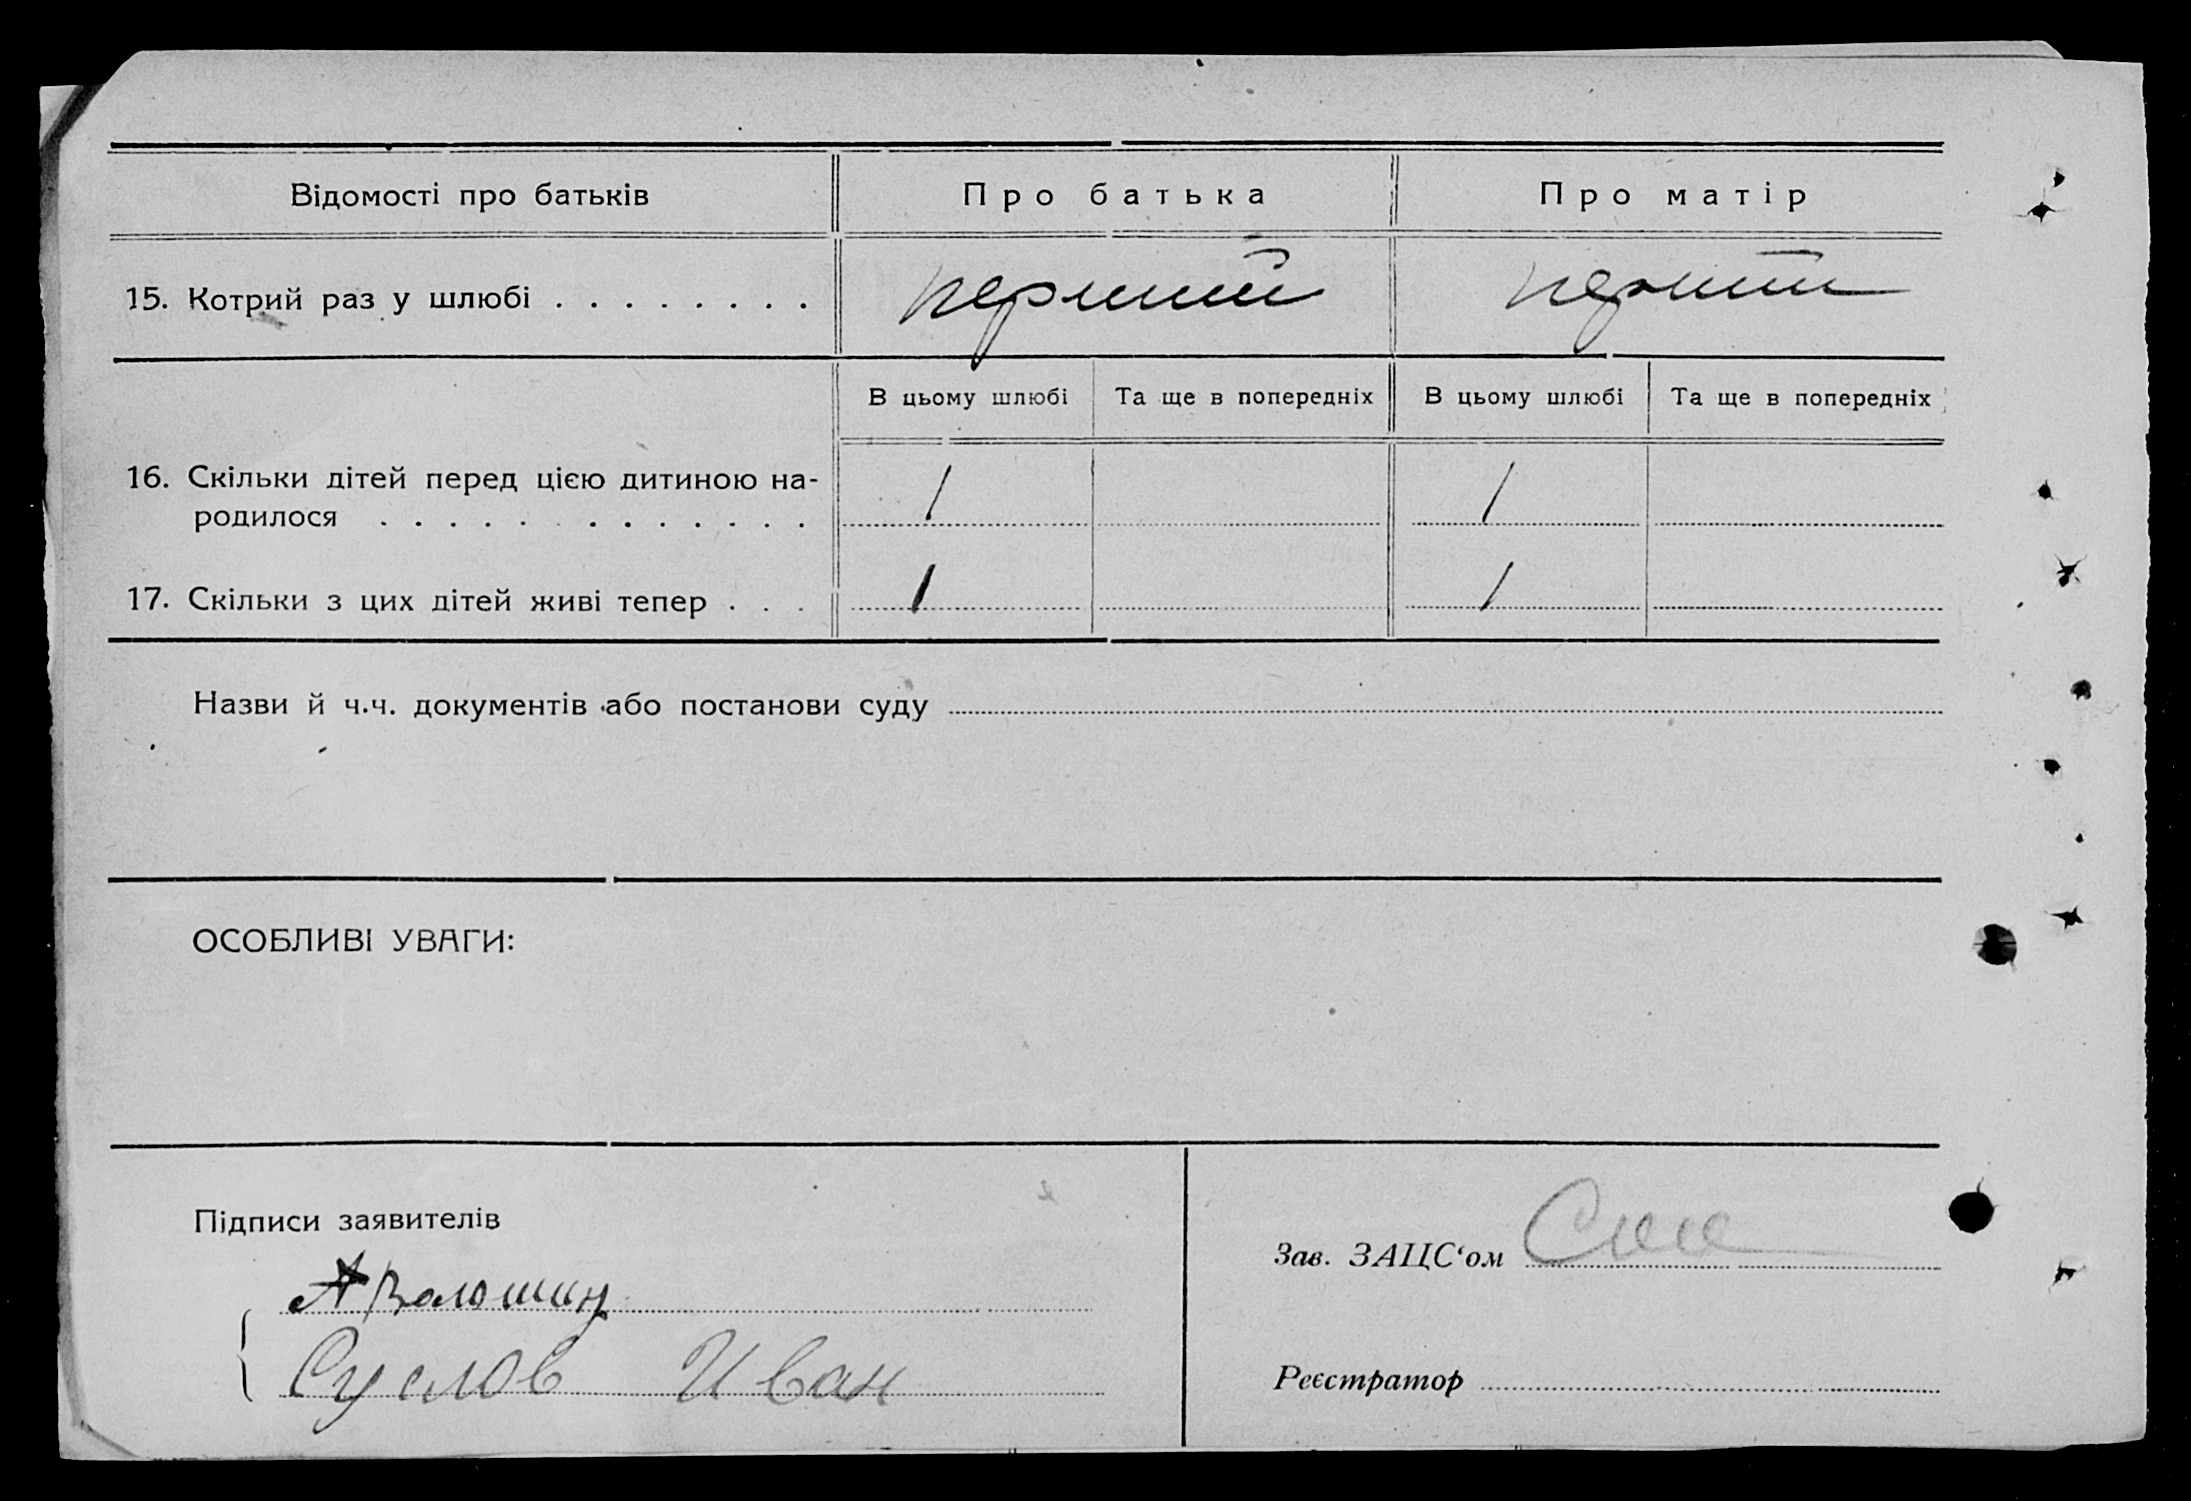 Відомості про батьків Про батька Про матір
15. Котрий раз у шлюбі . . . . . . . . перший перший
В цьому шлюбі Та ще в попередніх В цьому шлюбі Та ще в попередніх
16. Скільки дітей перед цією дитиною на-
родилося . . . . . . . . . . . . . 1 1
17. Скільки з цих дітей живі тепер . . . 1 1
Назви й ч.ч. документів або постанови суду
ОСОБЛИВІ УВАГИ:
Підписи заявителів
Зав. ЗАЦС‘ом
А Волошин
Суслов Иван
Реєстратор